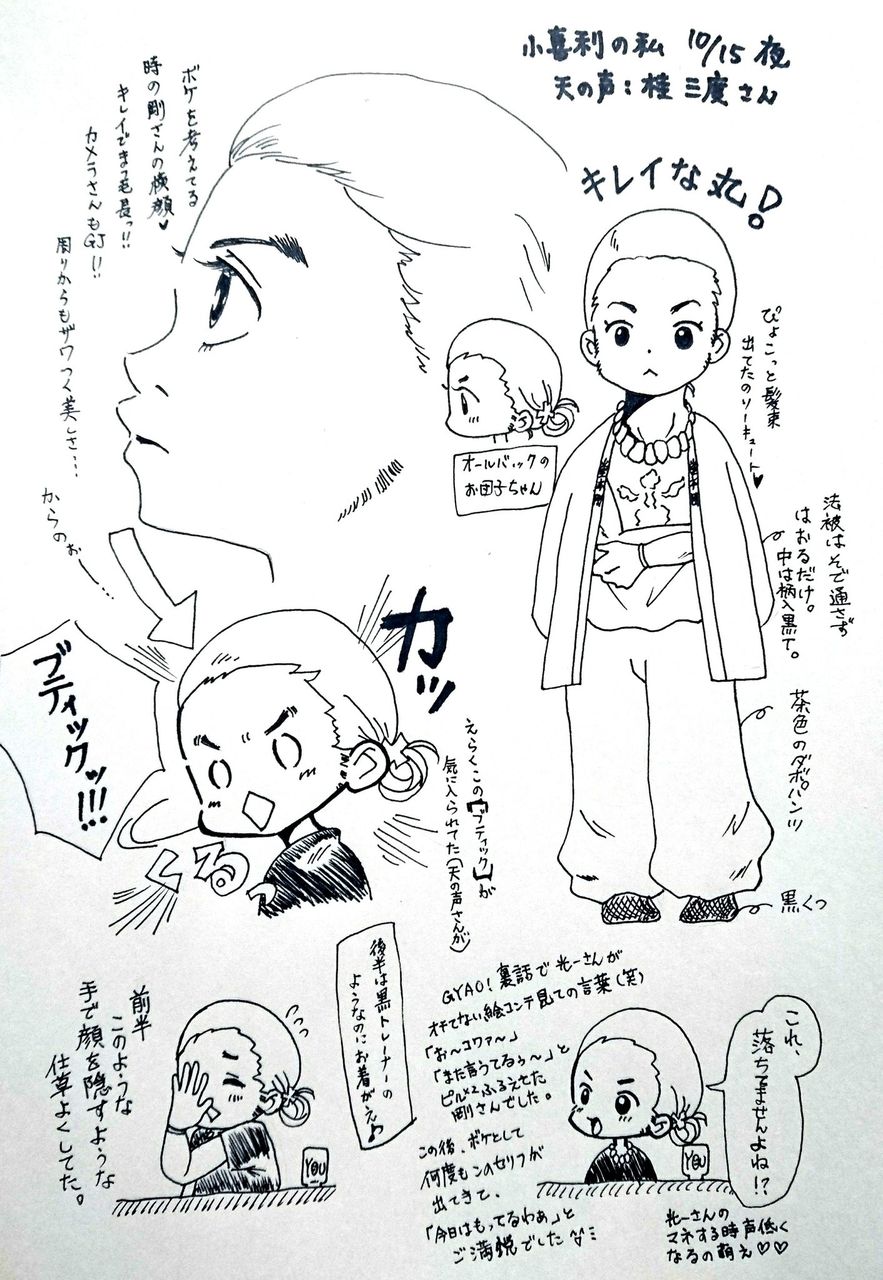 小喜利の私 10/15 夜
天の声：桂 三度さん
キレイな丸！
ボケを考えてる
時の剛さんの横顔♥
キレイでまつ毛長っ!!
カメラさんもGJ!!
周りからもザワつく美しさ…
からのぉ…
ぴょこっと髪束
出てたのソーキュート♥
オールバックの
お団子ちゃん
法被はそで通さず
はおるだけ。
中は柄入黒T。
カッ
ブティックッ!!!
くるっ
えらくこの【ブティック】が
気に入られてた（天の声さんが）
茶色のダボパンツ
黒くつ
後半は黒トレーナーの
ようなのにお着がえ♪
前半
このような
手で顔を隠すような
仕草よくしてた。
YOU
GYAO!裏話で光一さんが
オチてない絵コンテ見ての言葉(笑)
「お～コワァ～」
「まだ言うてるぅ～」と
ピル×2ふるえてた
剛さんでした。
この後、ボケとして
何度もこのセリフが
出てきて、
「今日はもってるわぁ」と
ご満悦でした
これ、
落ちてませんよね!?
YOU
光一さんの
マネする時声低く
なるの萌え♡♡